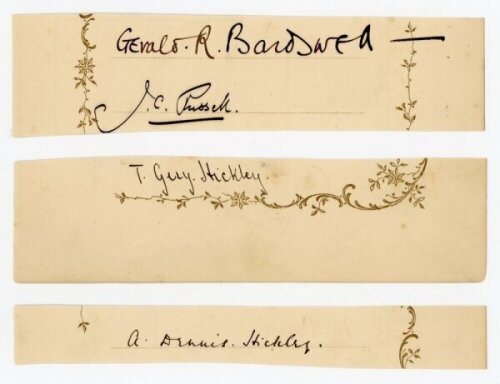 Gerald. R. Bardswell
J. C. Russell.
T. Gery. Hickley.
A. Dennis. Hickley.